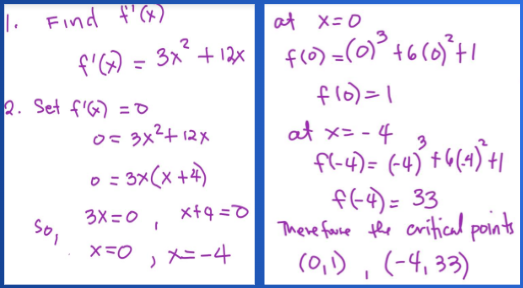 1. Find f'(x)
f'(x) = 3x² + 12x
2. Set f'(x) = 0
0 = 3x² + 12x
0 = 3x(x + 4)
So, 3x = 0 , x + 4 = 0
x = 0 , x = -4
at x = 0
f(0) = (0)³ + 6(0)² + 1
f(0) = 1
at x = -4
f(-4) = (-4)³ + 6(-4)² + 1
f(-4) = 33
Therefore the critical points
(0,1) , (-4, 33)